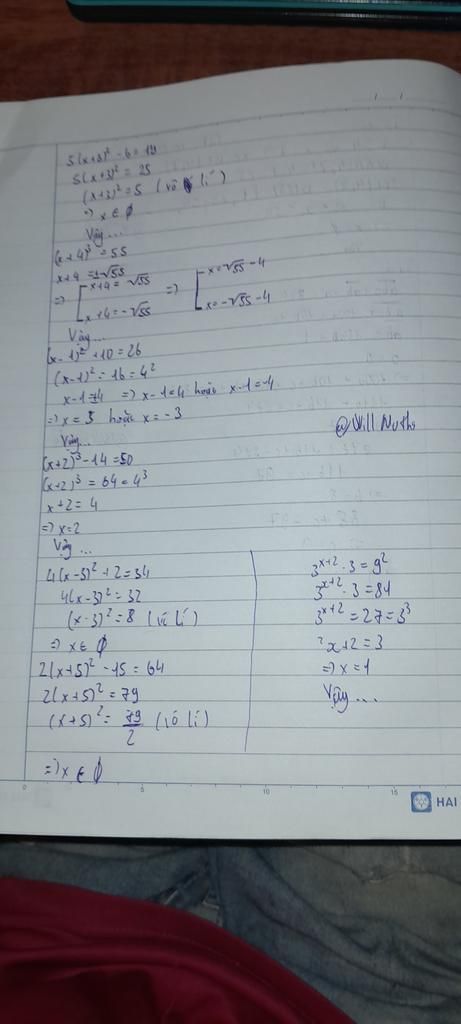 5(x+3)² - 6 = 19
5(x+3)² = 25
(x+3)² = 5 (vô lí)
=> x ∈ ∅
Vậy...
(x+4)² = 55
x+4 = ±√55
=> [ x+4 = √55 => [ x = √55 - 4
x+4 = -√55 x = -√55 - 4
Vậy...
(x-1)² + 10 = 26
(x-1)² = 16 = 4²
x-1 = ±4 => x-1 = 4 hoặc x-1 = -4
=> x = 5 hoặc x = -3
Vậy...
@Will
(x+2)³ - 14 = 50
(x+2)³ = 64 = 4³
x+2 = 4
=> x = 2
Vậy ...
4(x-3)² + 2 = 34
4(x-3)² = 32
(x-3)² = 8 (vô lí)
=> x ∈ ∅
2(x+5)² - 15 = 64
2(x+5)² = 79
(x+5)² = 79/2 (vô lí)
=> x ∈ ∅
3^{x+2} . 3 = 9²
3^{x+2} . 3 = 81
3^{x+2} = 27 = 3³
x+2 = 3
=> x = 1
Vậy...
0 5 10 15
HAI